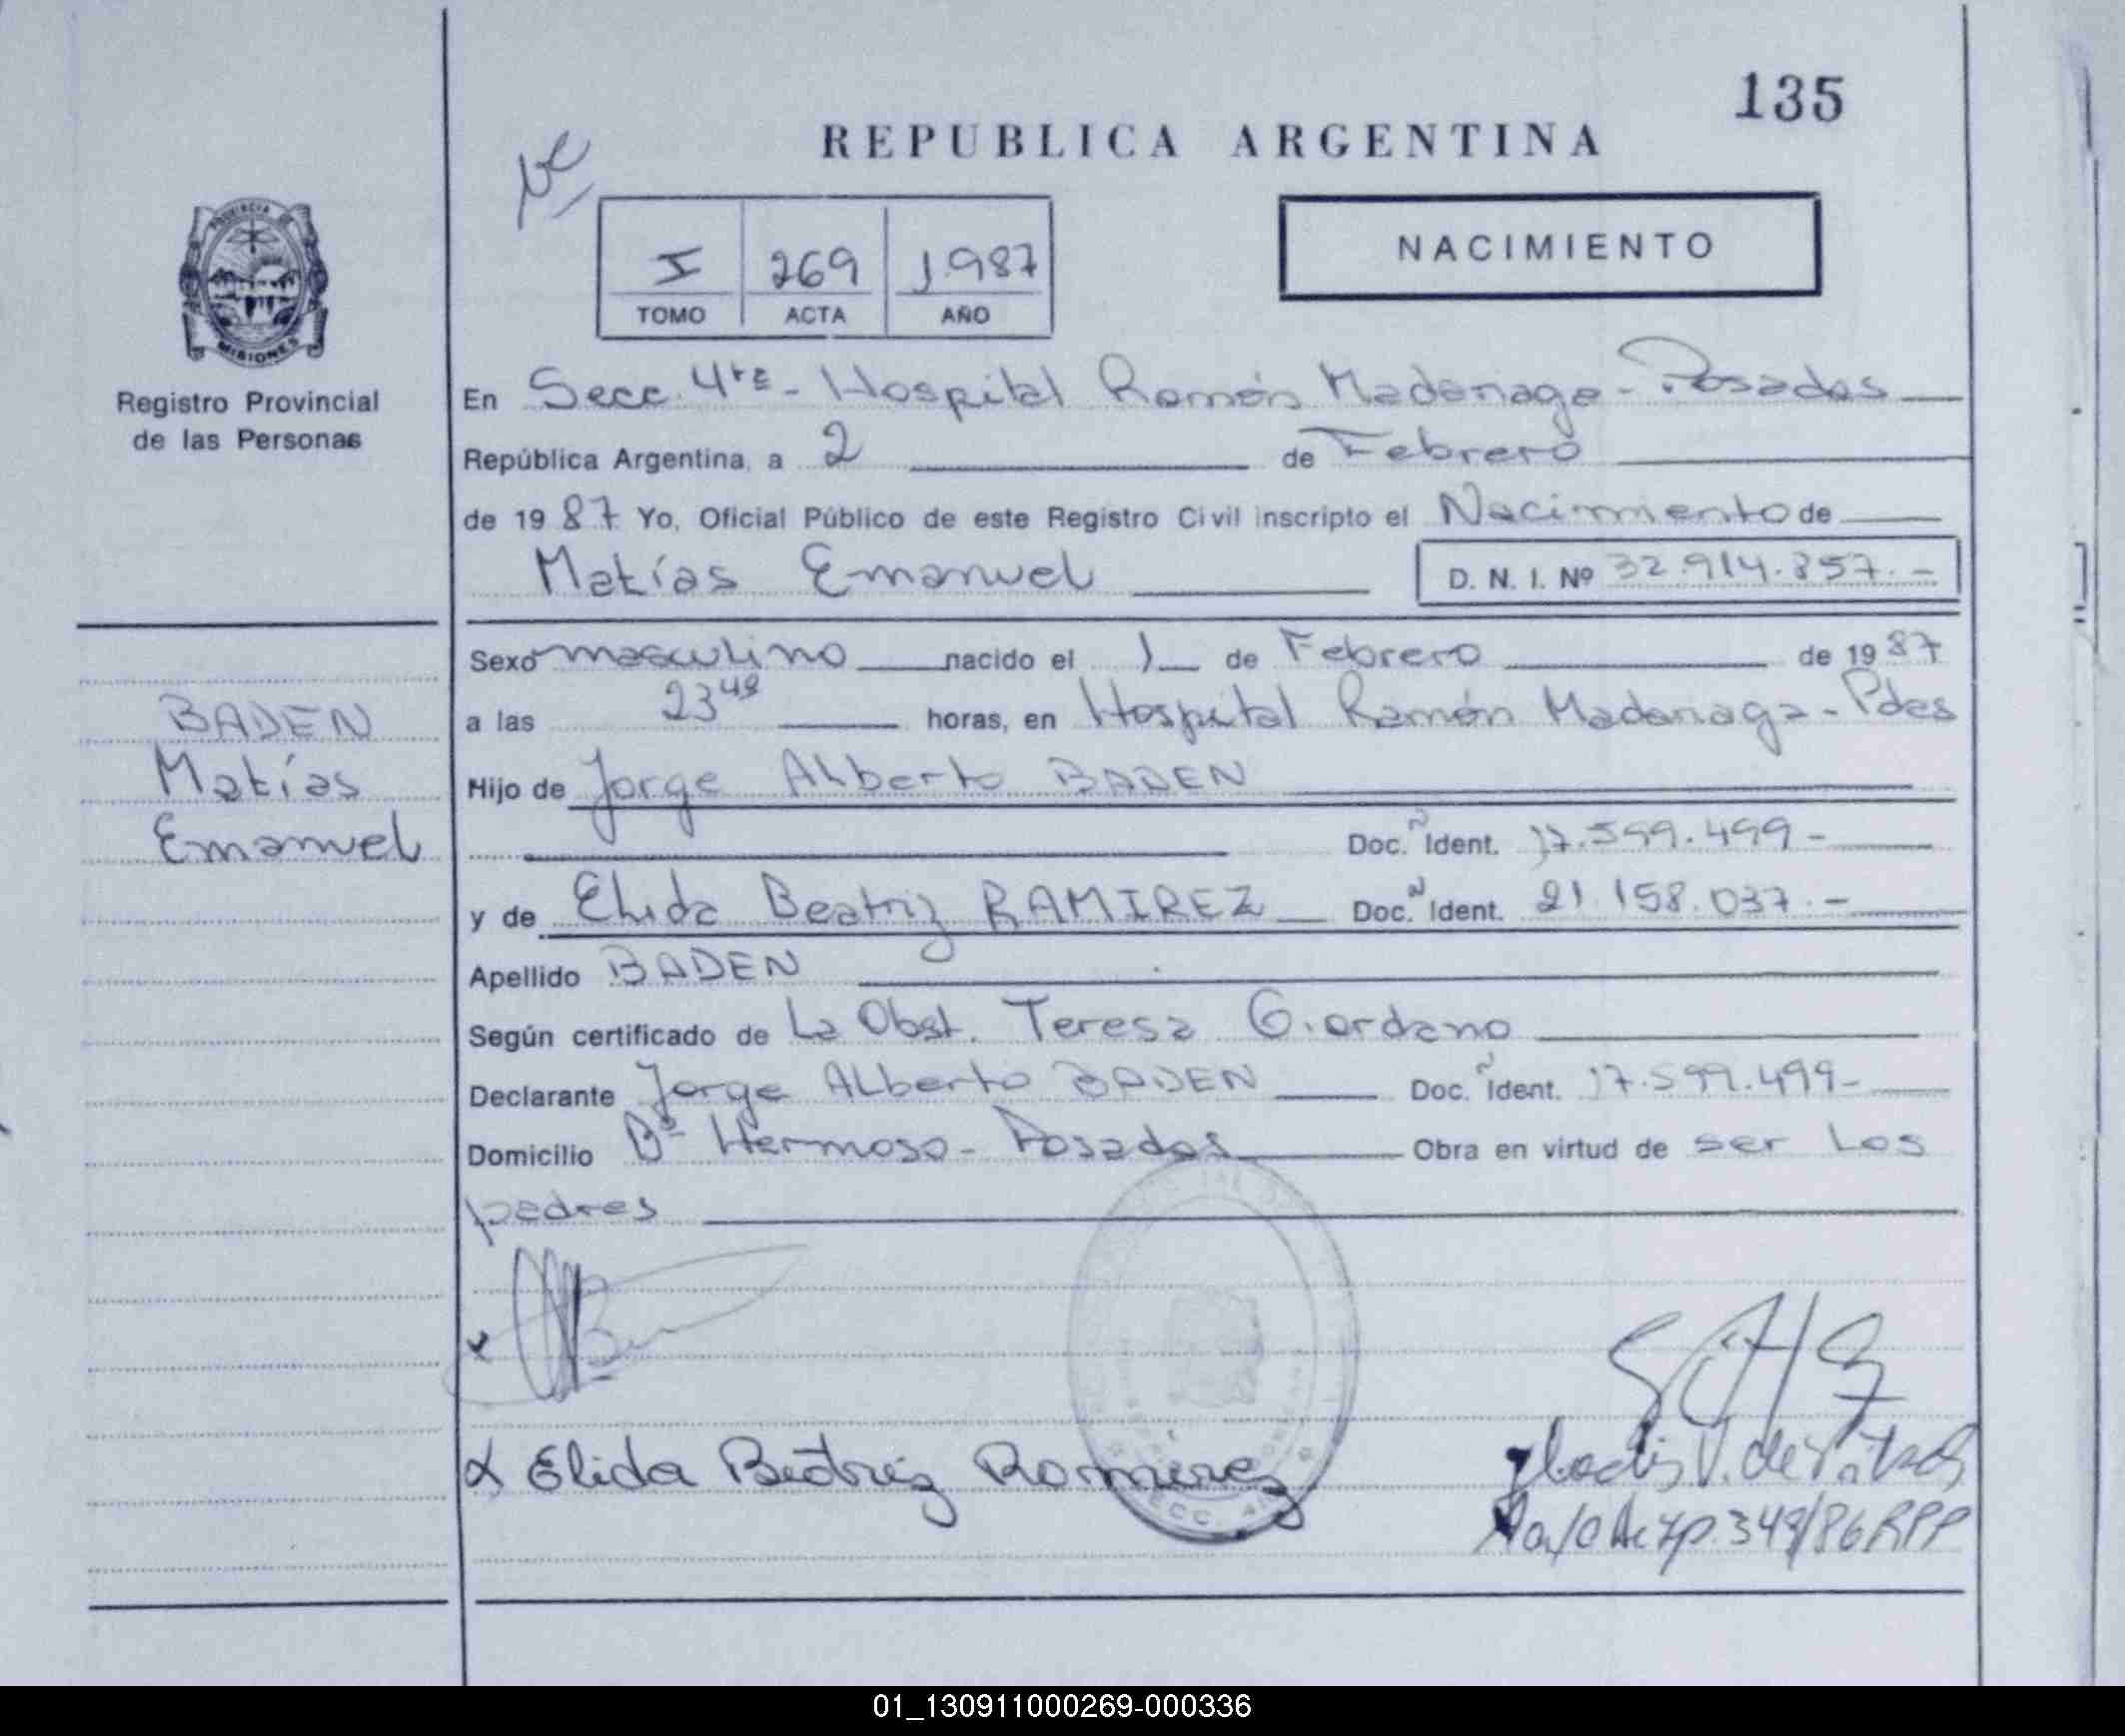 135
REPUBLICA ARGENTINA
NACIMIENTO
I 269 1.987
TOMO ACTA AÑO
PROVINCIA DE
MISIONES
Registro Provincial
de las Personas
En Secc. 4ta - Hospital Ramón Madariaga - Posadas
República Argentina, a 2 de Febrero
de 19 87 Yo, Oficial Público de este Registro Civil inscripto el Nacimiento de
Matías Emanuel D. N. I. Nº 32.914.857.-
Sexo masculino nacido el 1 de Febrero de 19 87
a las 23 48 horas, en Hospital Ramón Madariaga - Pdas
Hijo de Jorge Alberto BADEN
Doc. Ident. 17.599.499-
y de Elida Beatriz RAMIREZ Doc. Ident. 21.158.037.-
Apellido BADEN
Según certificado de La Obst. Teresa Giordano
Declarante Jorge Alberto BADEN Doc. Ident. 17.599.499-
Domicilio Bº Hermoso - Posadas Obra en virtud de ser los
padres
BADEN
Matías
Emanuel
x Elida Beatriz Ramirez
349/86 RPP
01_130911000269-000336